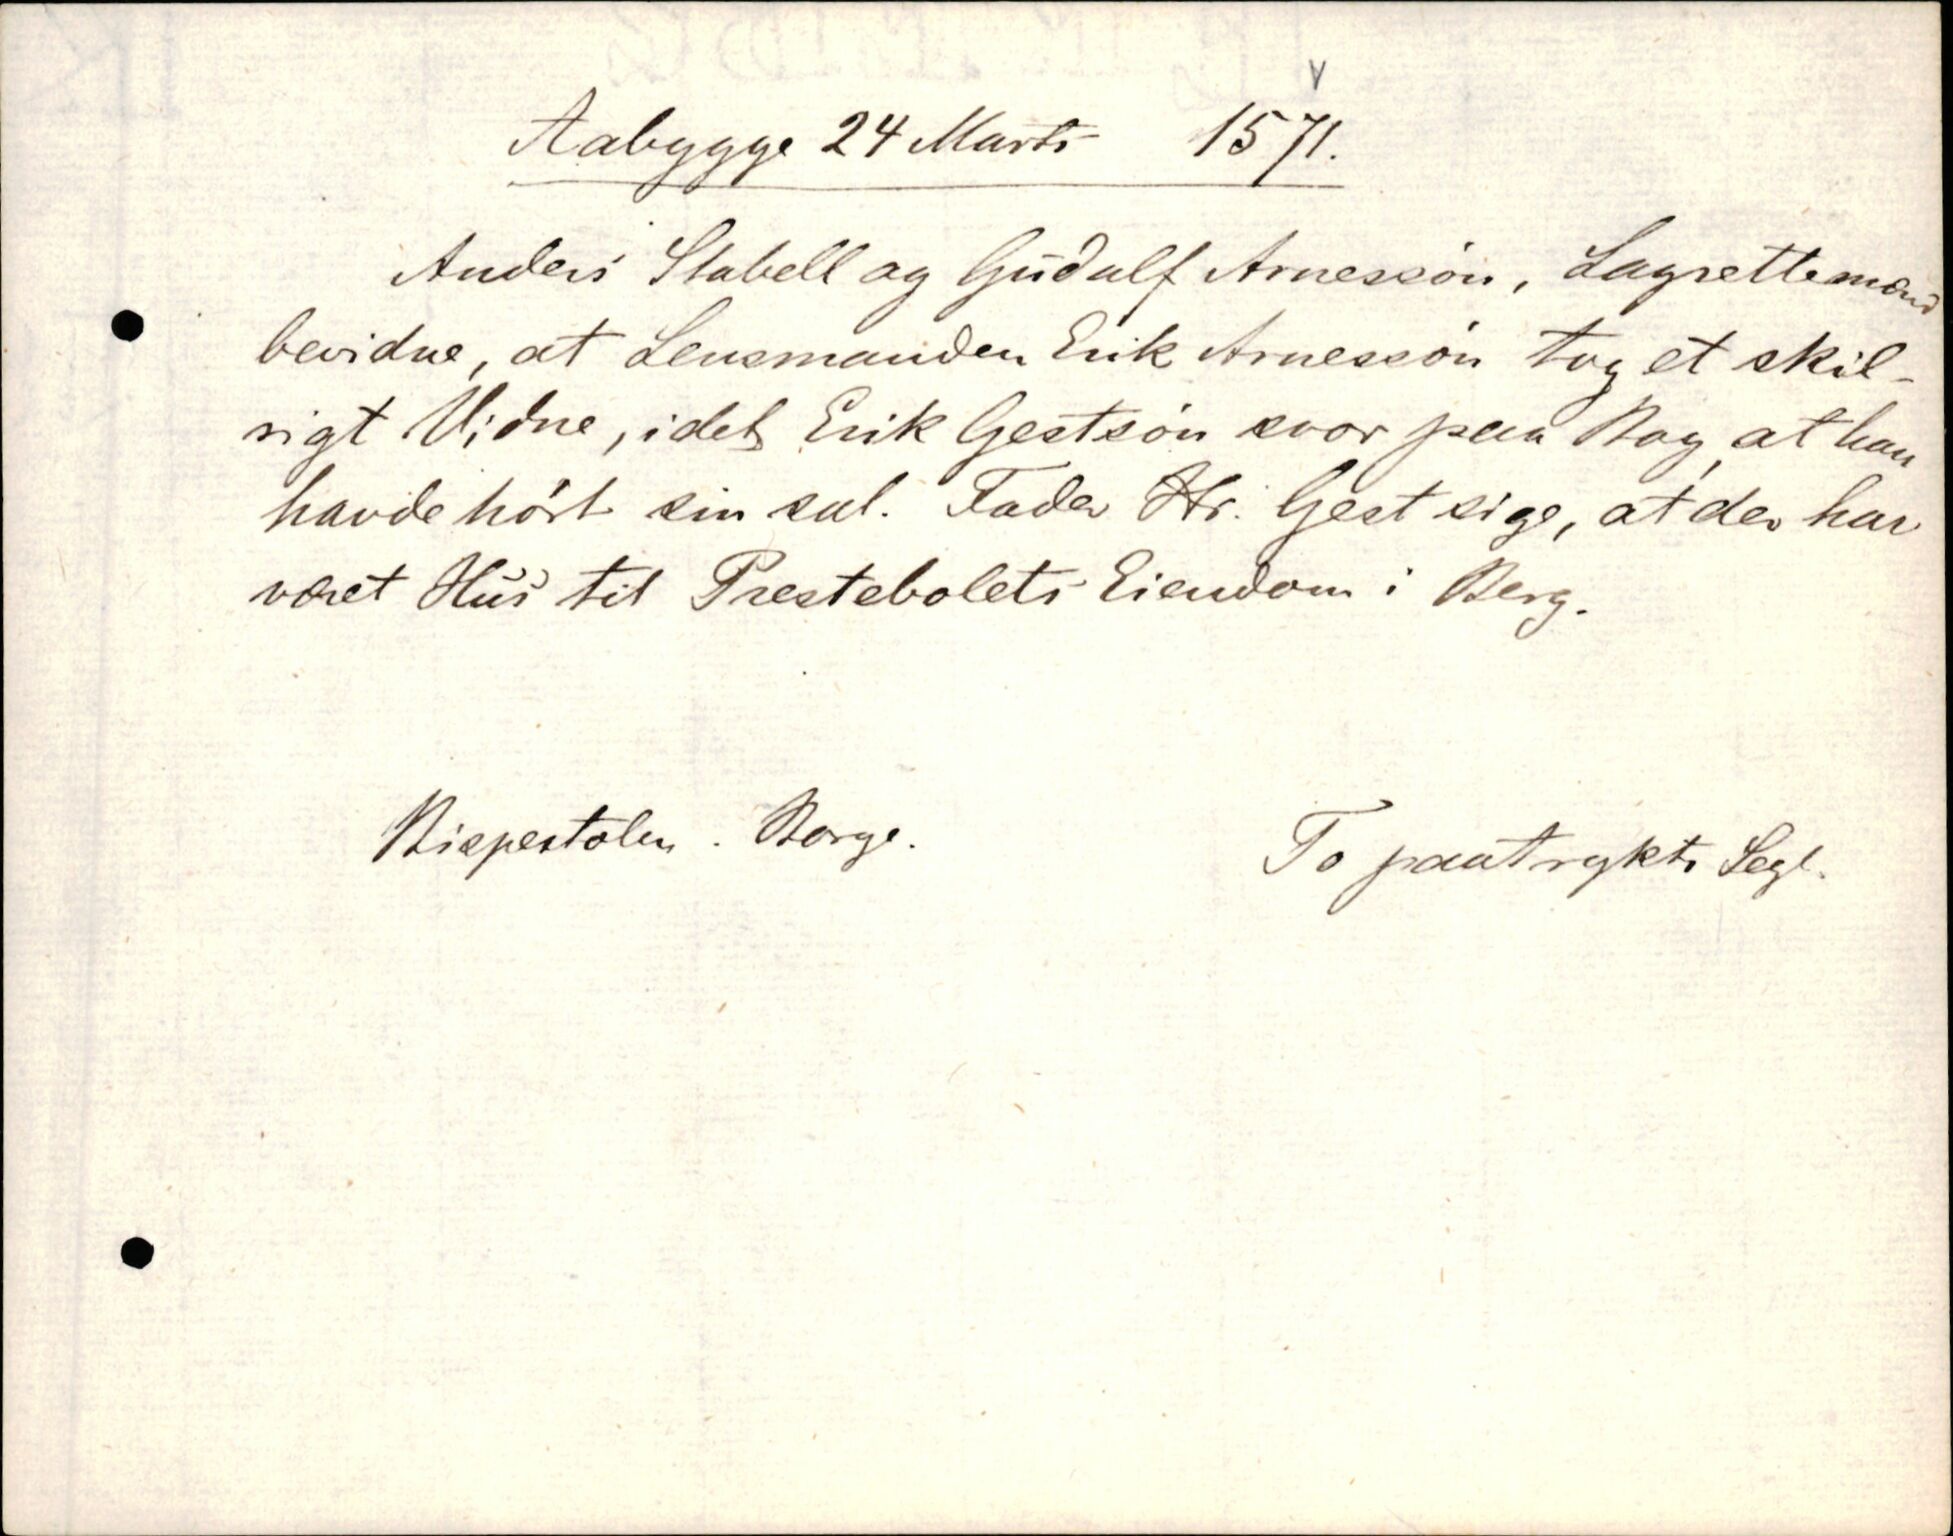 Aabygge 24 Marts 1571.
Anders Stabell og Gudulf Arnessön, Lagrettemænd
bevidne, at Lensmanden Erik Arnessön tog et skil-
rigt Vidne, idet Erik Gestsön svor paa Bog, at han
havde hört sin sal. Fader Hr. Gest sige, at der har
været Hus til Prestebolets Eiendom i Berg.
Bispestolen. Borge.
To paatrykte Segl.